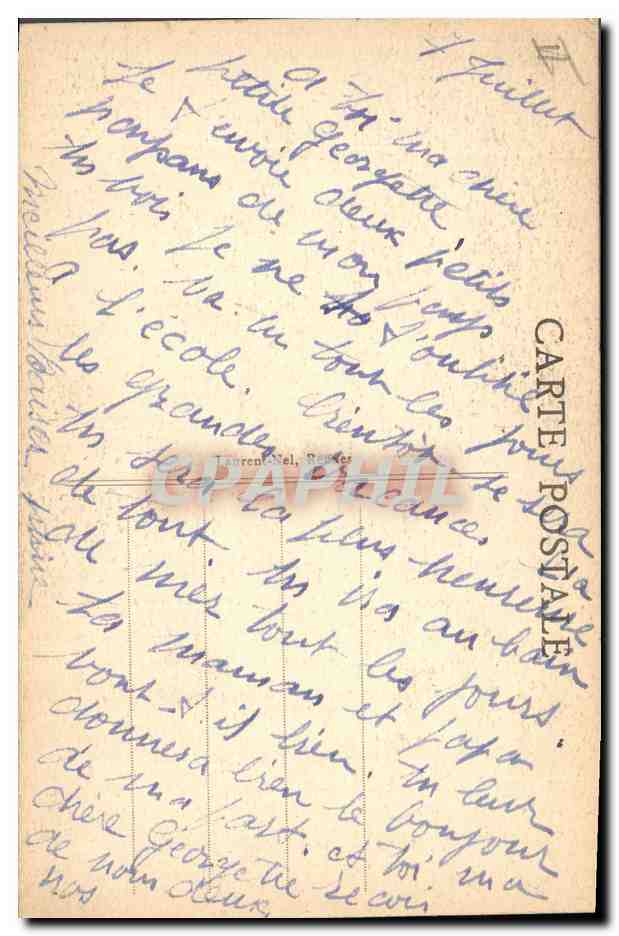 7 Juillet
A toi ma chère
petite Georgette
Je t'envoie deux petits
poupons de mon pays
tu vois je ne t'oublie
pas. Va tu tout les jours
à l'école. bientôt se sera
les grandes vacances
tu sera la plus heureuse
de tout. tu ira au bain
de mer tout les jours.
ta maman et papa
vont-t-il bien. tu leur
donnera bien le bonjour
de ma part. et toi ma
chère Georgette reçoi
de nous deux
nos
Meilleurs Baiser
CARTE POSTALE
Laurent-Nel, Rennes
CPAPHIL